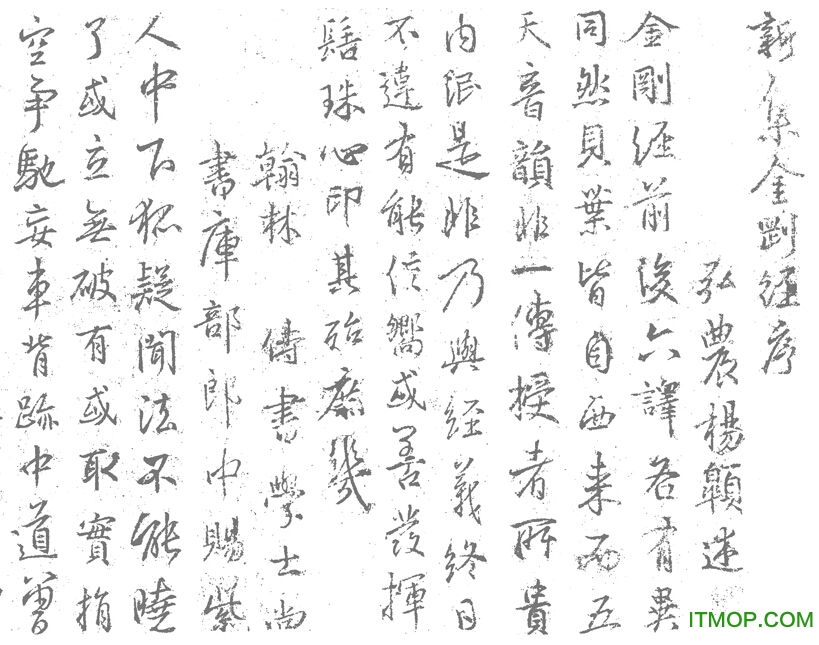 新集金剛經序
弘農楊顗述
金剛經前後六譯各有異
同然貝葉皆自西来而五
天音韻非一傳授者所貴
内泯是非乃與經義終日
不違有能信嚮或善發揮
髻珠心印其殆庶幾
翰林 侍書學士尚
書庫部郎中賜紫
人中下狐疑聞法不能曉
了或立無破有或取實捐
空争馳妄車背跡中道曾
ITMOP.COM